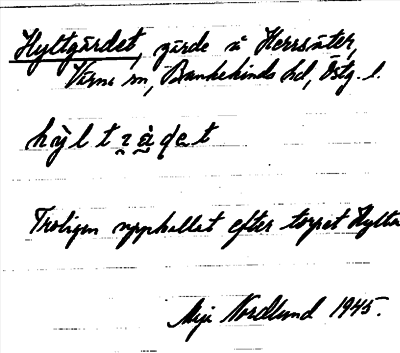 Hyltgärdet, gärde å Herrsäter,
Värna sn, Bankekinds hd, Östg. l.
Troligen uppkallat efter torpet Hylta
Maja Nordlund 1945.